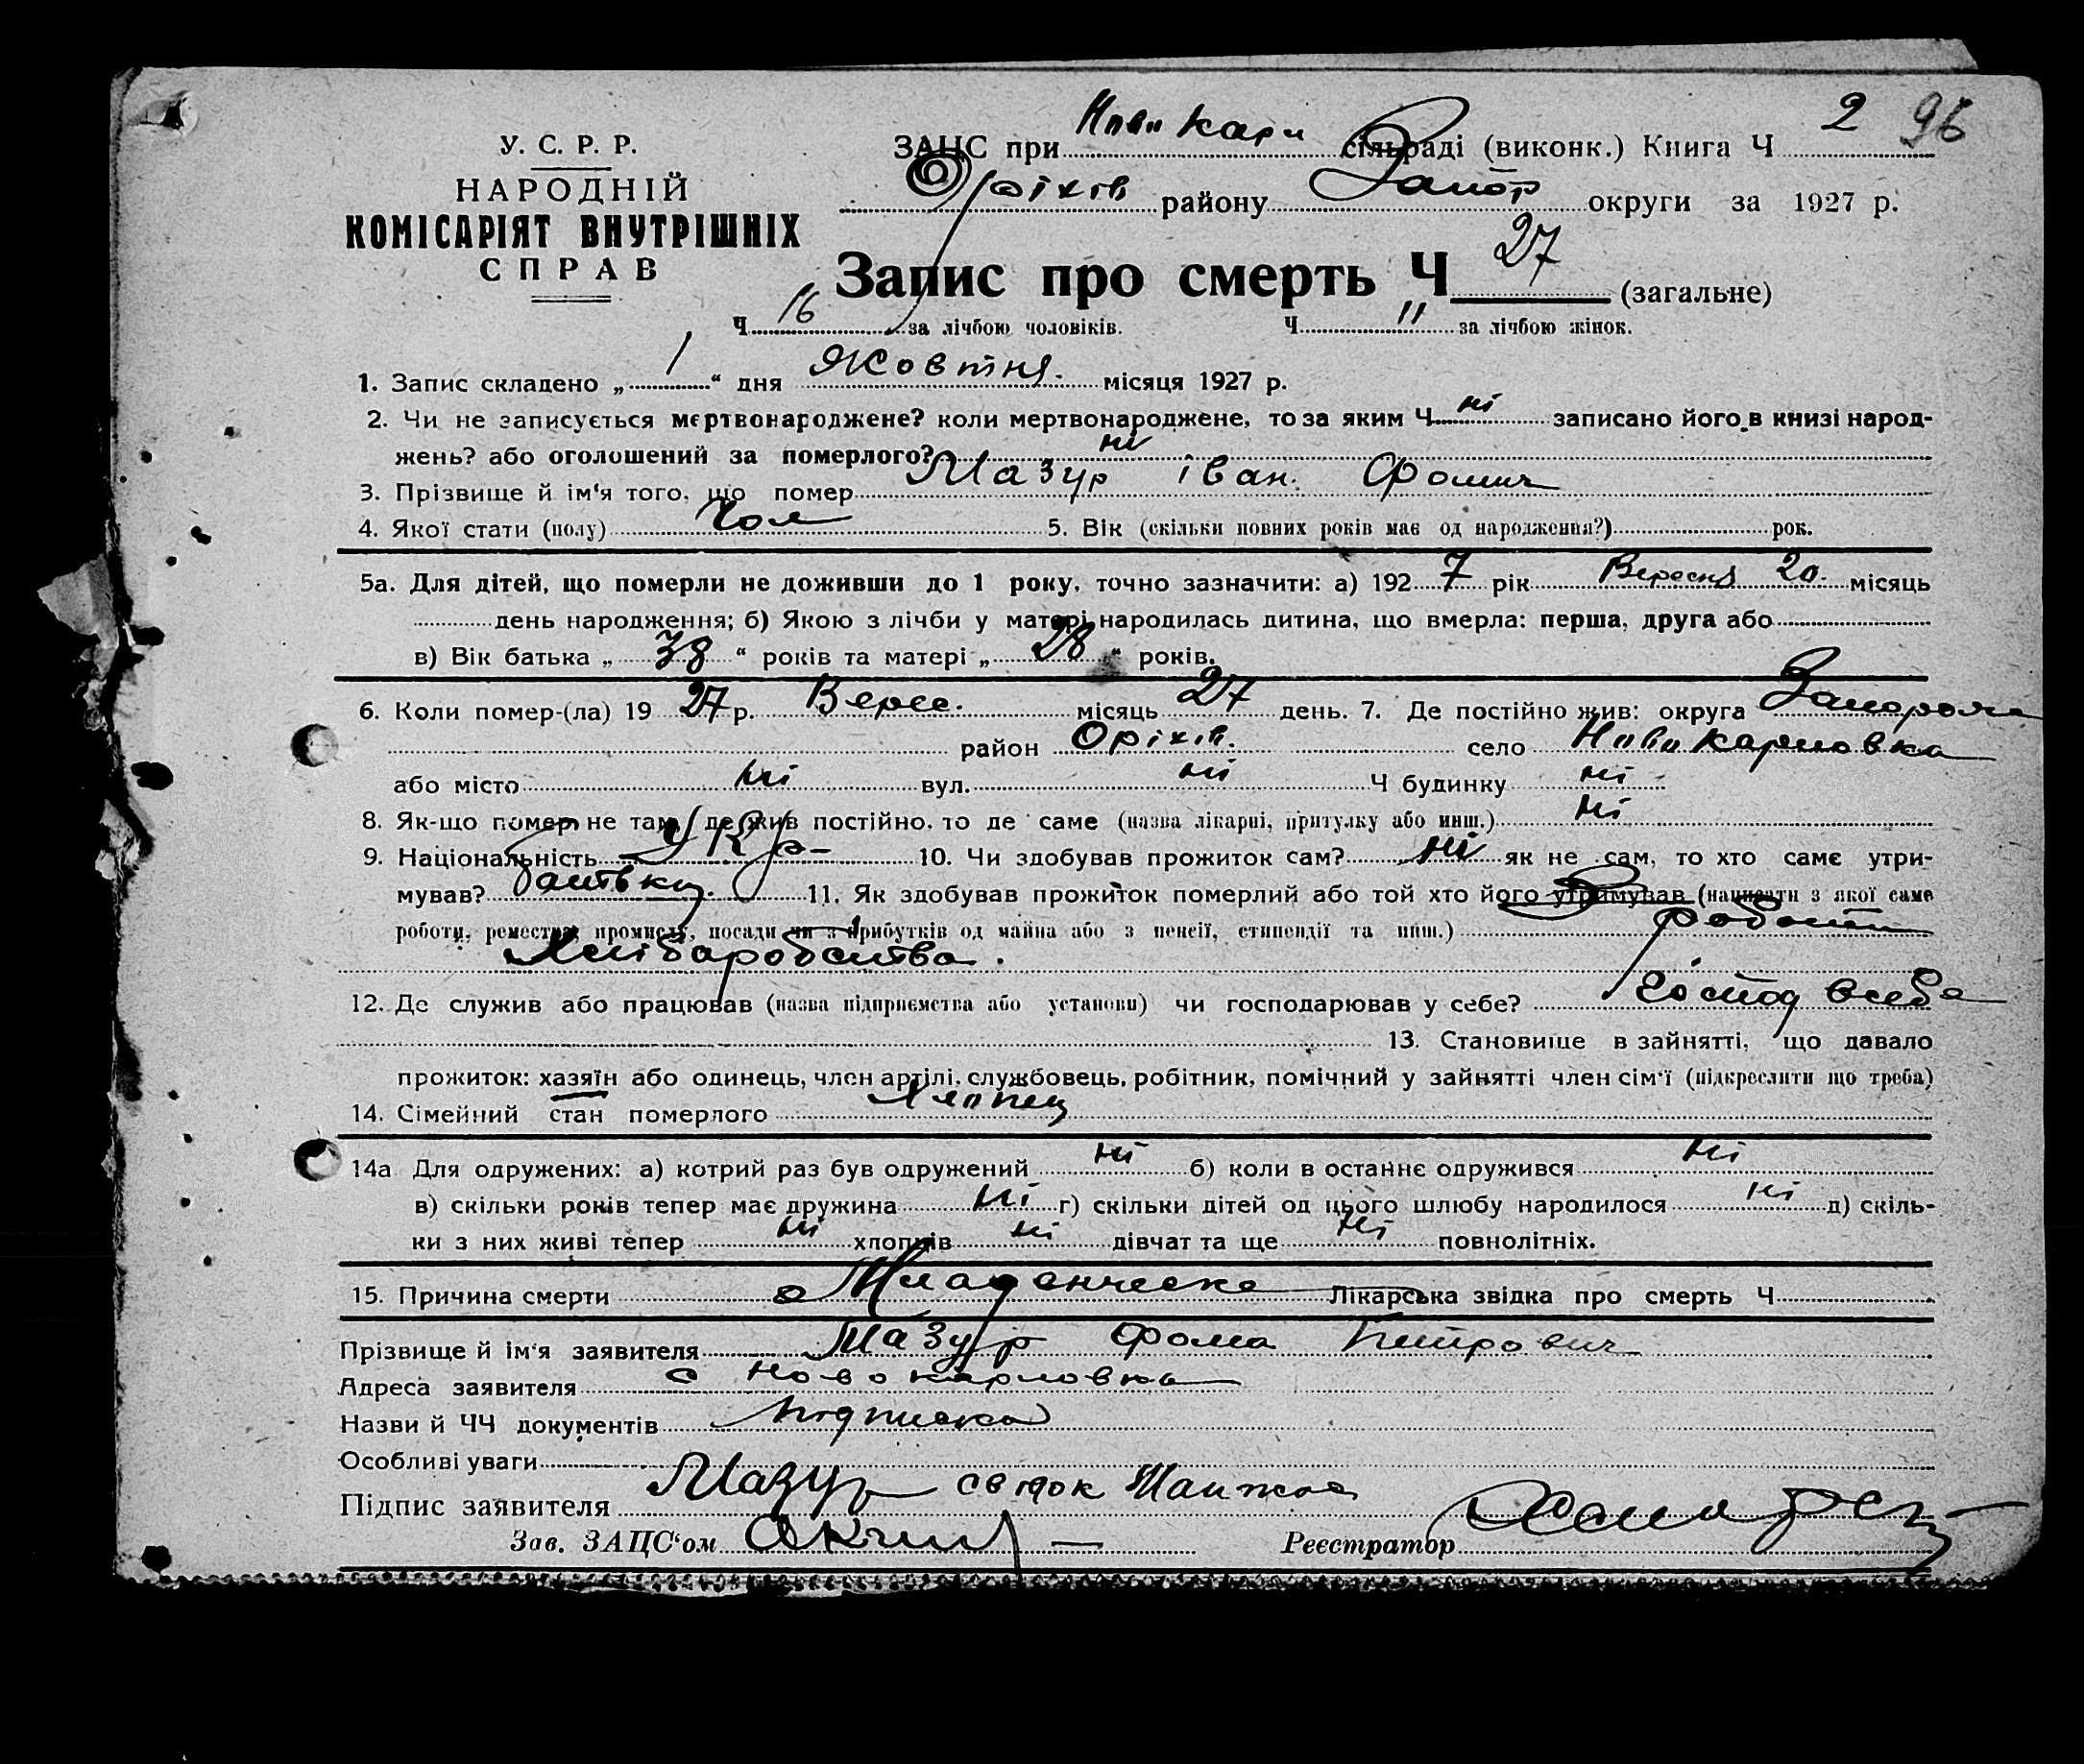 2 96
У. С. Р. Р.
НАРОДНІЙ
КОМІСАРІЯТ ВНУТРІШНІХ
СПРАВ
ЗАЦС при Ново Кари сільраді (виконк.) Книга Ч
Оріхів району Запор округи за 1927 р.
Запис про смерть Ч 27 (загальне)
Ч 16 за лічбою чоловіків. Ч 11 за лічбою жінок.
1. Запис складено „ 1 “ дня Жовтня. місяця 1927 р.
2. Чи не записується мертвонароджене? коли мертвонароджене, то за яким Ч ні записано його в книзі народ-
жень? або оголошений за померлого? ні
3. Прізвище й ім‘я того, що помер Мазур Іван. Фомич
4. Якої стати (полу) Чол 5. Вік (скільки повних років має од народження?) рок.
5а. Для дітей, що померли не доживши до 1 року, точно зазначити: а) 192 7 рік Вересня 20. місяць
день народження; б) Якою з лічби у матері народилась дитина, що вмерла: перша, друга або
в) Вік батька „ 38 “ років та матері „ 28 “ років.
6. Коли помер-(ла) 19 27 р. Верес. місяць 27 день. 7. Де постійно жив: округа Запорож
район Оріхів. село Ново Карловка
або місто ні вул. ні Ч будинку ні
8. Як-що помер не там, де жив постійно, то де саме (назва лікарні, притулку або инш.) ні
9. Національність Укр- 10. Чи здобував прожиток сам? ні як не сам, то хто саме утри-
мував? батьки. 11. Як здобував прожиток померлий або той хто його утримував (написати з якої саме
роботи, ремества, промислу, посади чи з прибутків од майна або з пенсії, стипендії та инш.) роботи
Хлібаробства.
12. Де служив або працював (назва підприємства або установи) чи господарював у себе? Господ всебе
13. Становище в зайнятті, що давало
прожиток: хазяїн або одинець, член артілі, службовець, робітник, помічний у зайнятті член сім‘ї (підкреслити що треба)
14. Сімейний стан померлого Хлопец
14а Для одружених: а) котрий раз був одружений ні б) коли в останнє одружився ні
в) скільки років тепер має дружина ні г) скільки дітей од цього шлюбу народилося ні д) скіль-
ки з них живі тепер ні хлопців ні дівчат та ще ні повнолітніх.
15. Причина смерти Младенческа Лікарська звідка про смерть Ч
Прізвище й ім‘я заявителя Мазур Фома Питрович
Адреса заявителя с Новокарловка
Назви й ЧЧ документів підписка
Особливі уваги
Підпис заявителя Мазур свідок
Зав. ЗАЦС‘ом Реєстратор